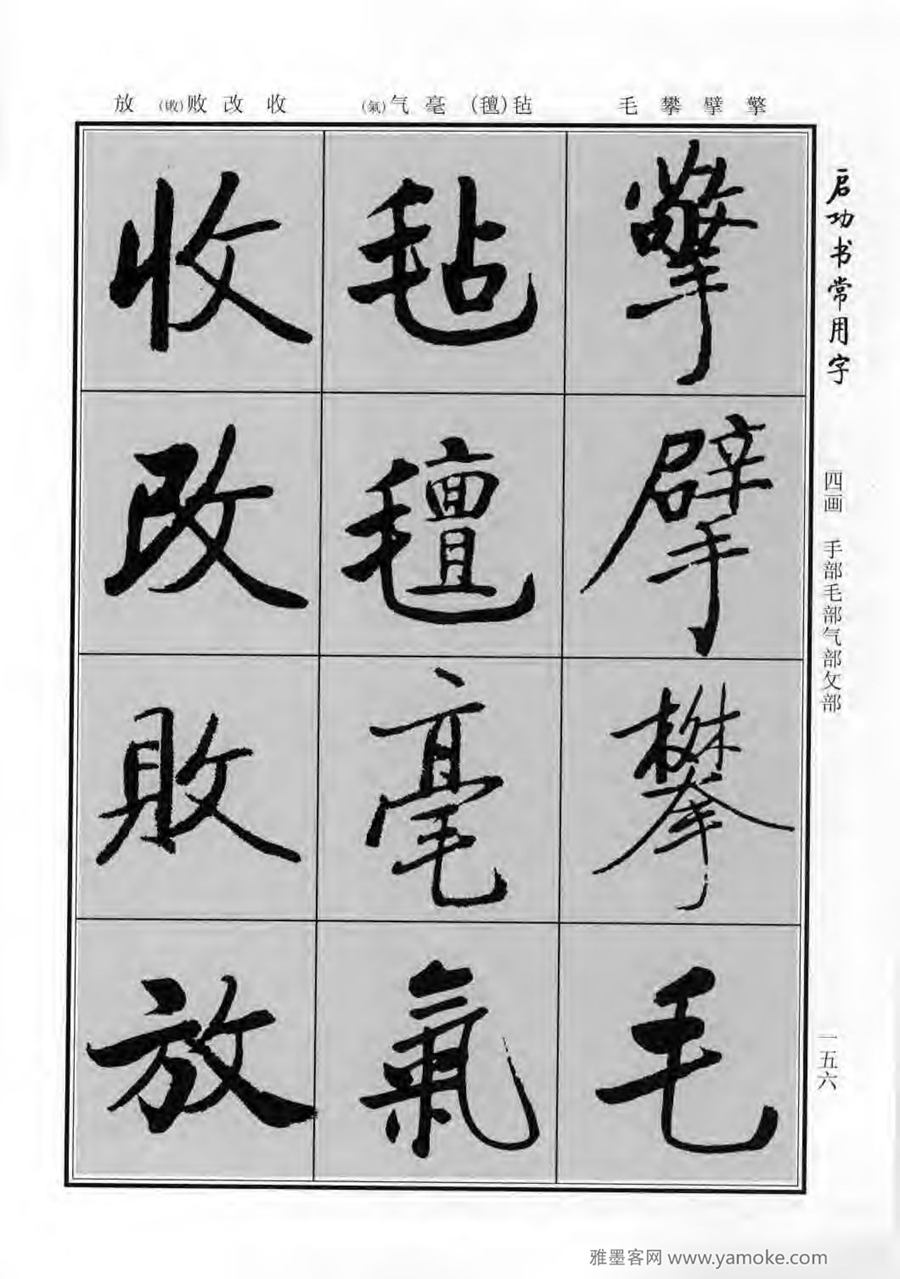 擎擘攀毛
毡(氊)毫气(氣)
收改败(敗)放
擎
擘
攀
毛
毡
氊
毫
氣
收
改
敗
放
启功书常用字
四画 手部毛部气部攵部
一五六
雅墨客网 www.yamoke.com